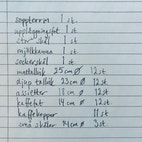 soppterrin 1 st.
uppläggningsfat 1 st
stor skål 1 st.
mjölkkanna 1 st.
sockerskål 1 st.
mattallrik 25 cm Ø 12 st
djup tallrik 23 cm Ø 12 st
assietter 18 cm Ø 12 st
kaffefat 14 cm Ø 12 st
kaffekoppar 11 st
små skålar 14 cm Ø 3 st